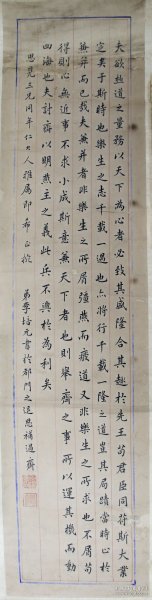 夫欲極道之量務以天下為心者必致其盛隆合其趣於先王苟君臣同符斯大業
定矣于斯時也樂生之志千載一遇也亦將行千載一隆之道豈其局蹟當時止於
兼并而已哉夫兼并者非樂生之所屑彊燕而廢道又非樂生之所求也不屑苟
得則心無近事不求小成斯意兼天下者也則舉齊之事所以運其機而動
四海也夫討齊以明燕主之義此兵不興於為利矣
三兄同年仁大人雅属即希正
弟培元書於都門之退思補過齋